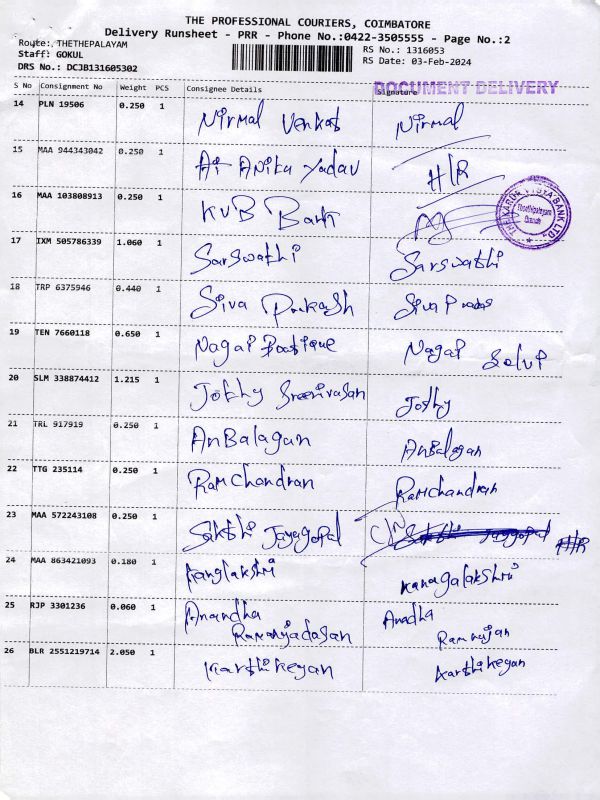 THE PROFESSIONAL COURIERS, COIMBATORE
Delivery Runsheet - PRR - Phone No.:0422-3505555 - Page No.:2
Route: THETHEPALAYAM
Staff: GOKUL
DRS No.: DCJB131605302
RS No.: 1316053
RS Date: 03-Feb-2024
S No Consignment No Weight PCS Consignee Details Signature
DOCUMENT DELIVERY
14 PLN 19506 0.250 1 Nirmal Venkat Nirmal
15 MAA 944343042 0.250 1 Anika Yadav H/R
16 MAA 103808913 0.250 1 KVB Bank
THE KARUR VYSYA BANK LTD.
Thethipalayam
Branch
17 IXM 505786339 1.060 1 Sarswathi Sarswathi
18 TRP 6375946 0.440 1 Siva Prakash Siva
19 TEN 7660118 0.650 1 Nagai Boutique Nagai Selvi
20 SLM 338874412 1.215 1 Jothy Sreenivasan Jothy
21 TRL 917919 0.250 1 AnBalagan AnBalagan
22 TTG 235114 0.250 1 RamChandran RamChandran
23 MAA 572243108 0.250 1 Sakthi Jayagopal H/R
24 MAA 863421093 0.180 1 Kanagalakshmi
25 RJP 3301236 0.060 1 Anandha Anadha
Ramanujadasan Ramnujan
26 BLR 2551219714 2.050 1 Karthikeyan Karthikeyan